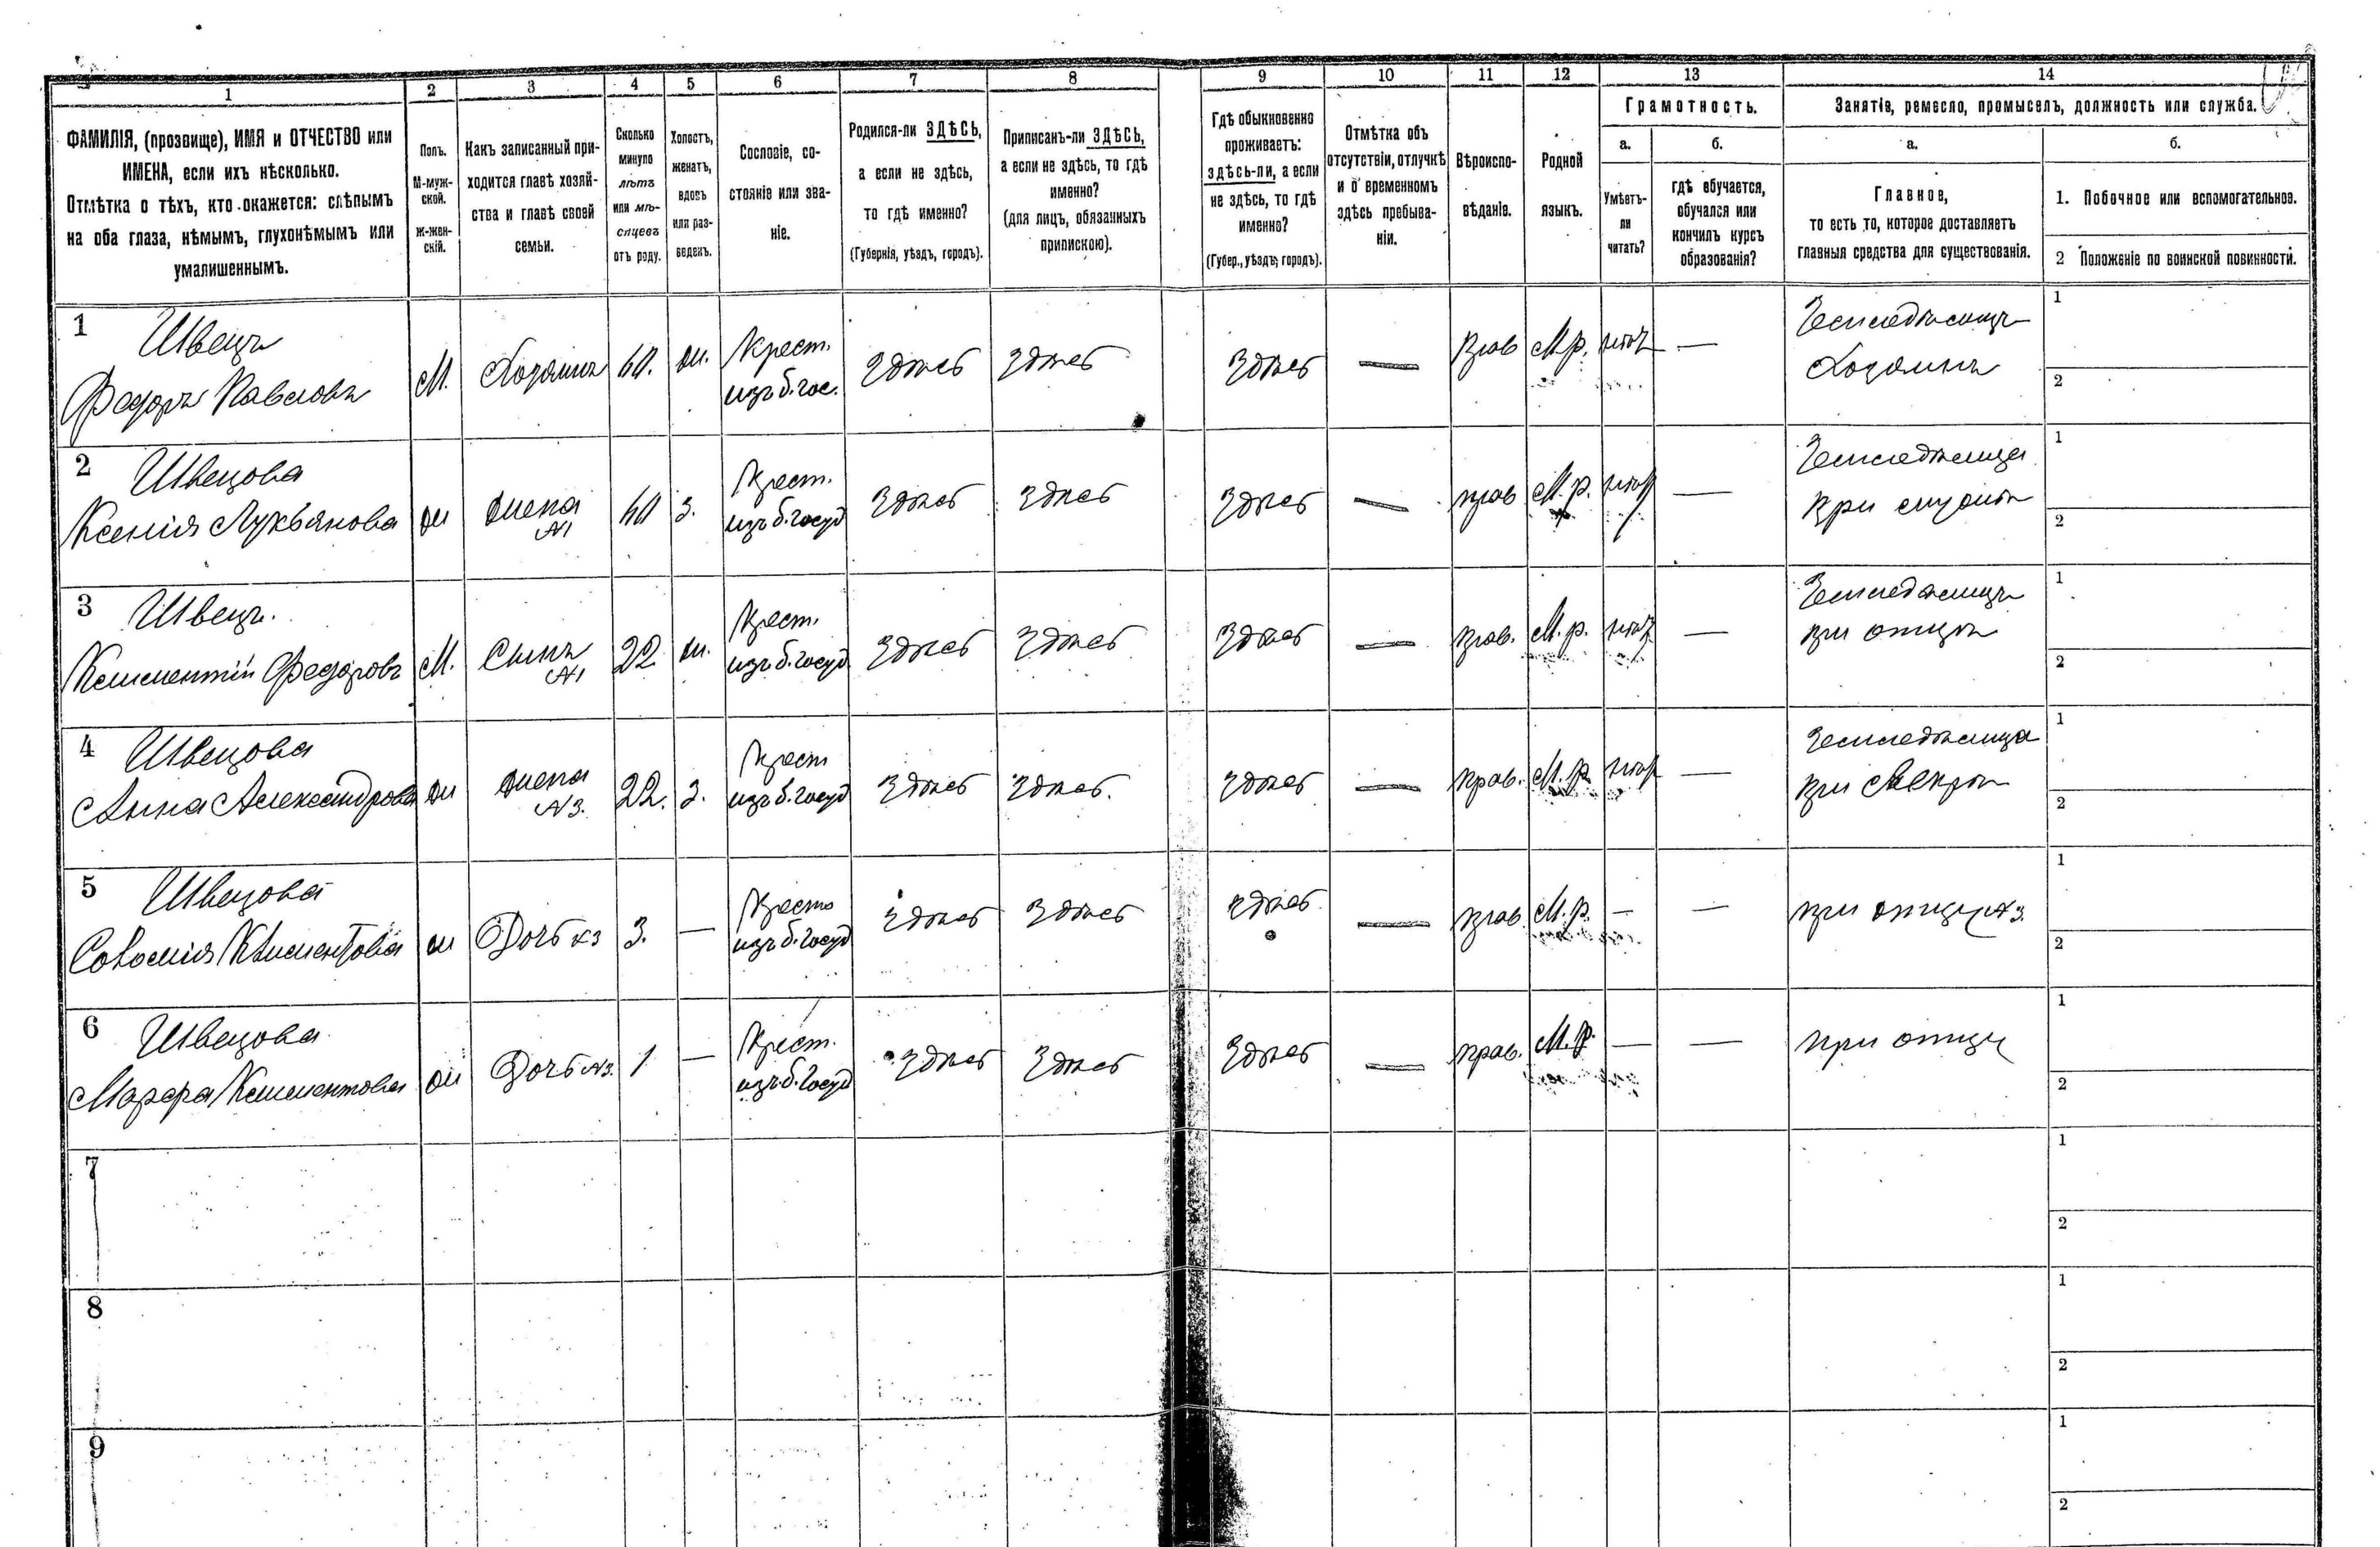 1 2 3 4 5 6 7 8 9 10 11 12 13 14
ФАМИЛІЯ, (прозвище), ИМЯ и ОТЧЕСТВО или
ИМЕНА, если ихъ нѣсколько.
Отмѣтка о тѣхъ, кто окажется: слѣпымъ
на оба глаза, нѣмымъ, глухонѣмымъ или
умалишеннымъ.
Полъ.
М-муж-
ской.
ж-жен-
скій.
Какъ записанный при-
ходится главѣ хозяй-
ства и главѣ своей
семьи.
Сколько
минуло
лѣтъ
или мѣ-
сяцевъ
отъ роду.
Холостъ,
женатъ,
вдовъ
или раз-
веденъ.
Сословіе, со-
стояніе или зва-
ніе.
Родился-ли ЗДѢСЬ,
а если не здѣсь,
то гдѣ именно?
(Губернія, уѣздъ, городъ).
Приписанъ-ли ЗДѢСЬ,
а если не здѣсь, то гдѣ
именно?
(для лицъ, обязанныхъ
припискою).
Гдѣ обыкновенно
проживаетъ:
здѣсь-ли, а если
не здѣсь, то гдѣ
именно?
(Губер., уѣздъ, городъ).
Отмѣтка объ
отсутствіи, отлучкѣ
и о временномъ
здѣсь пребыва-
ніи.
Вѣроиспо-
вѣданіе.
Родной
языкъ.
Грамотность.
а.
Умѣетъ-
ли
читать?
б.
гдѣ обучается,
обучался или
кончилъ курсъ
образованія?
Занятіе, ремесло, промыселъ, должность или служба.
а.
Главное,
то есть то, которое доставляетъ
главныя средства для существованія.
б.
1. Побочное или вспомогательное.
2 Положеніе по воинской повинности.
1 Швецъ
Федоръ Павловъ
М. Хозяинъ 60. ж. Крест.
изъ б. гос. Здѣсь Здѣсь Здѣсь — Прав М.р. нѣтъ —
Земледѣлецъ
Хозяинъ
1
2
2 Швецова
Ксенія Лукьянова
ж жена
№1 60 з. Крест.
изъ б. госуд Здѣсь Здѣсь Здѣсь — прав М.р. нѣтъ —
Земледѣлица
при мужѣ
1
2
3 Швецъ.
Климентій Федоровъ
М. Сынъ
№1 22 ж. Крест.
изъ б. госуд Здѣсь Здѣсь Здѣсь — прав. М.р. нѣтъ —
Земледѣлецъ
при отцѣ
1
2
4 Швецова
Анна Александрова
ж жена
№3. 22. з. Крест
изъ б. госуд Здѣсь Здѣсь. Здѣсь — прав. М.р. нѣтъ —
Земледѣлица
при свекрѣ
1
2
5 Швецова
Соломія Климентова
ж Дочь №3 3. — Крест
изъ б. госуд Здѣсь Здѣсь Здѣсь — прав М.р. — —
при отцу №3.
1
2
6 Швецова
Марфа Климентова
ж Дочь №3. 1 — Крест.
изъ б. госуд Здѣсь Здѣсь Здѣсь — прав. М.р. — —
при отцу
1
2
7
1
2
8
1
2
9
1
2